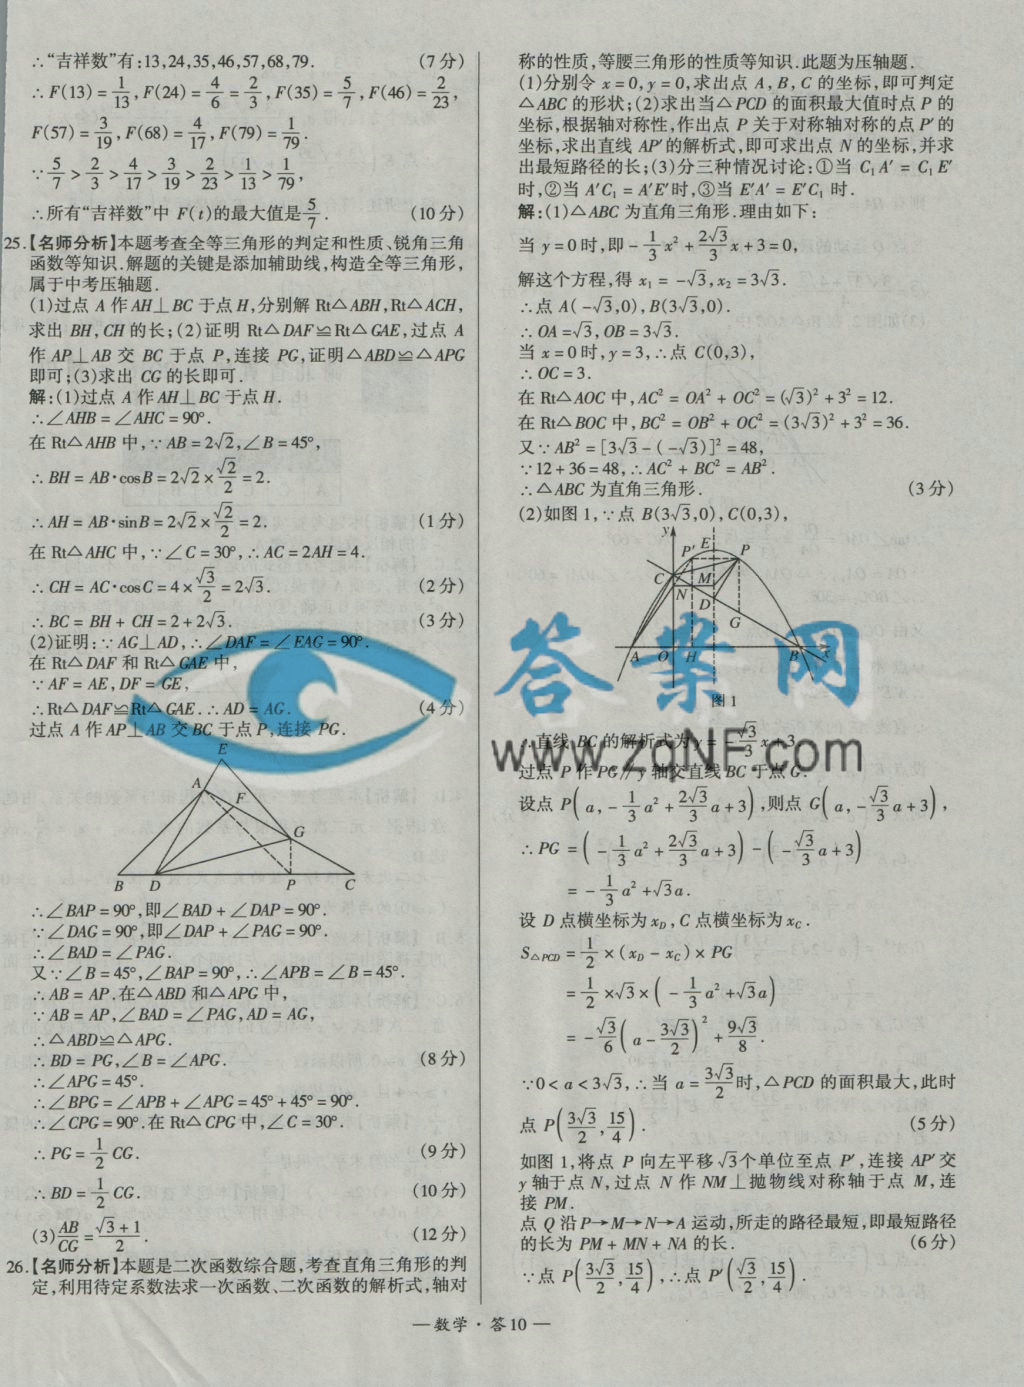 ∴“吉祥数”有:13,24,35,46,57,68,79. (7分)
∴F(13)=1/13,F(24)=4/6=2/3,F(35)=5/7,F(46)=2/23,
F(57)=3/19,F(68)=4/17,F(79)=1/79.
∵5/7>2/3>4/17>3/19>2/23>1/13>1/79,
∴所有“吉祥数”中 F(t)的最大值是5/7. (10分)
25.【名师分析】本题考查全等三角形的判定和性质、锐角三角
函数等知识.解题的关键是添加辅助线,构造全等三角形,
属于中考压轴题.
(1)过点 A 作 AH⊥BC 于点 H,分别解 Rt△ABH,Rt△ACH,
求出 BH,CH 的长;(2)证明 Rt△DAF≌Rt△GAE,过点 A
作 AP⊥AB 交 BC 于点 P,连接 PG,证明△ABD≌△APG
即可;(3)求出 CG 的长即可.
解:(1)过点 A 作 AH⊥BC 于点 H.
∴∠AHB=∠AHC=90°.
在 Rt△AHB 中,∵AB=2√2,∠B=45°,
∴BH=AB·cosB=2√2×√2/2=2.
∴AH=AB·sinB=2√2×√2/2=2. (1分)
在 Rt△AHC 中,∵∠C=30°,∴AC=2AH=4.
∴CH=AC·cosC=4×√3/2=2√3. (2分)
∴BC=BH+CH=2+2√3. (3分)
(2)证明:∵AG⊥AD,∴∠DAF=∠EAG=90°.
在 Rt△DAF 和 Rt△GAE 中,
∵AF=AE,DF=GE,
∴Rt△DAF≌Rt△GAE.∴AD=AG. (4分)
过点 A 作AP⊥AB 交 BC 于点 P,连接 PG.
E
A
F
G
B D P C
∴∠BAP=90°,即∠BAD+∠DAP=90°.
∵∠DAG=90°,即∠DAP+∠PAG=90°.
∴∠BAD=∠PAG.
又∵∠B=45°,∠BAP=90°,∴∠APB=∠B=45°.
∴AB=AP.在△ABD 和△APG 中,
∵AB=AP,∠BAD=∠PAG,AD=AG,
∴△ABD≌△APG.
∴BD=PG,∠B=∠APG. (8分)
∴∠APG=45°.
∴∠BPG=∠APB+∠APG=45°+45°=90°.
∴∠CPG=90°.在 Rt△CPG 中,∠C=30°.
∴PG=1/2 CG. (9分)
∴BD=1/2 CG. (10分)
(3)AB/CG=(√3+1)/2. (12分)
26.【名师分析】本题是二次函数综合题,考查直角三角形的判
定,利用待定系数法求一次函数、二次函数的解析式,轴对
称的性质,等腰三角形的性质等知识.此题为压轴题.
(1)分别令 x=0,y=0,求出点 A,B,C 的坐标,即可判定
△ABC 的形状;(2)求出当△PCD 的面积最大值时点 P 的
坐标,根据轴对称性,作出点 P 关于对称轴对称的点 P′的
坐标,求出直线 AP′的解析式,即可求出点 N 的坐标,并求
出最短路径的长;(3)分三种情况讨论:①当 C₁A′=C₁E′
时,②当 A′C₁=A′E′时,③当 E′A′=E′C₁ 时.
解:(1)△ABC 为直角三角形.理由如下:
当 y=0 时,即-1/3x²+2√3/3x+3=0,
解这个方程,得 x₁=-√3,x₂=3√3.
∴点 A(-√3,0),B(3√3,0).
∴OA=√3,OB=3√3.
当 x=0 时,y=3,∴点 C(0,3),
∴OC=3.
在 Rt△AOC 中,AC²=OA²+OC²=(√3)²+3²=12.
在 Rt△BOC 中,BC²=OB²+OC²=(3√3)²+3²=36.
又∵AB²=[3√3-(-√3)]²=48,
∵12+36=48,∴AC²+BC²=AB².
∴△ABC 为直角三角形. (3分)
(2)如图 1,∵点 B(3√3,0),C(0,3),
y
P′ E P
C M
N D
G
A O H B x
图 1
∴直线 BC 的解析式为 y=-√3/3x+3.
过点 P 作PG∥y 轴交直线 BC 于点 G.
设点 P(a,-1/3a²+2√3/3a+3),则点 G(a,-√3/3a+3),
∴PG=(-1/3a²+2√3/3a+3)-(-√3/3a+3)
=-1/3a²+√3a.
设 D 点横坐标为 x_D,C 点横坐标为 x_C.
S△PCD=1/2×(x_D-x_C)×PG
=1/2×√3×(-1/3a²+√3a)
=-√3/6(a-3√3/2)²+9√3/8.
∵0<a<3√3,∴当 a=3√3/2时,△PCD 的面积最大,此时
点 P(3√3/2,15/4). (5分)
如图 1,将点 P 向左平移√3个单位至点 P′,连接 AP′交
y 轴于点 N,过点 N 作 NM⊥抛物线对称轴于点 M,连
接 PM.
点 Q 沿 P→M→N→A 运动,所走的路径最短,即最短路径
的长为 PM+MN+NA 的长. (6分)
∵点 P(3√3/2,15/4),∴点 P′(√3/2,15/4).
答案网
www.zqNF.com
—数学·答10—